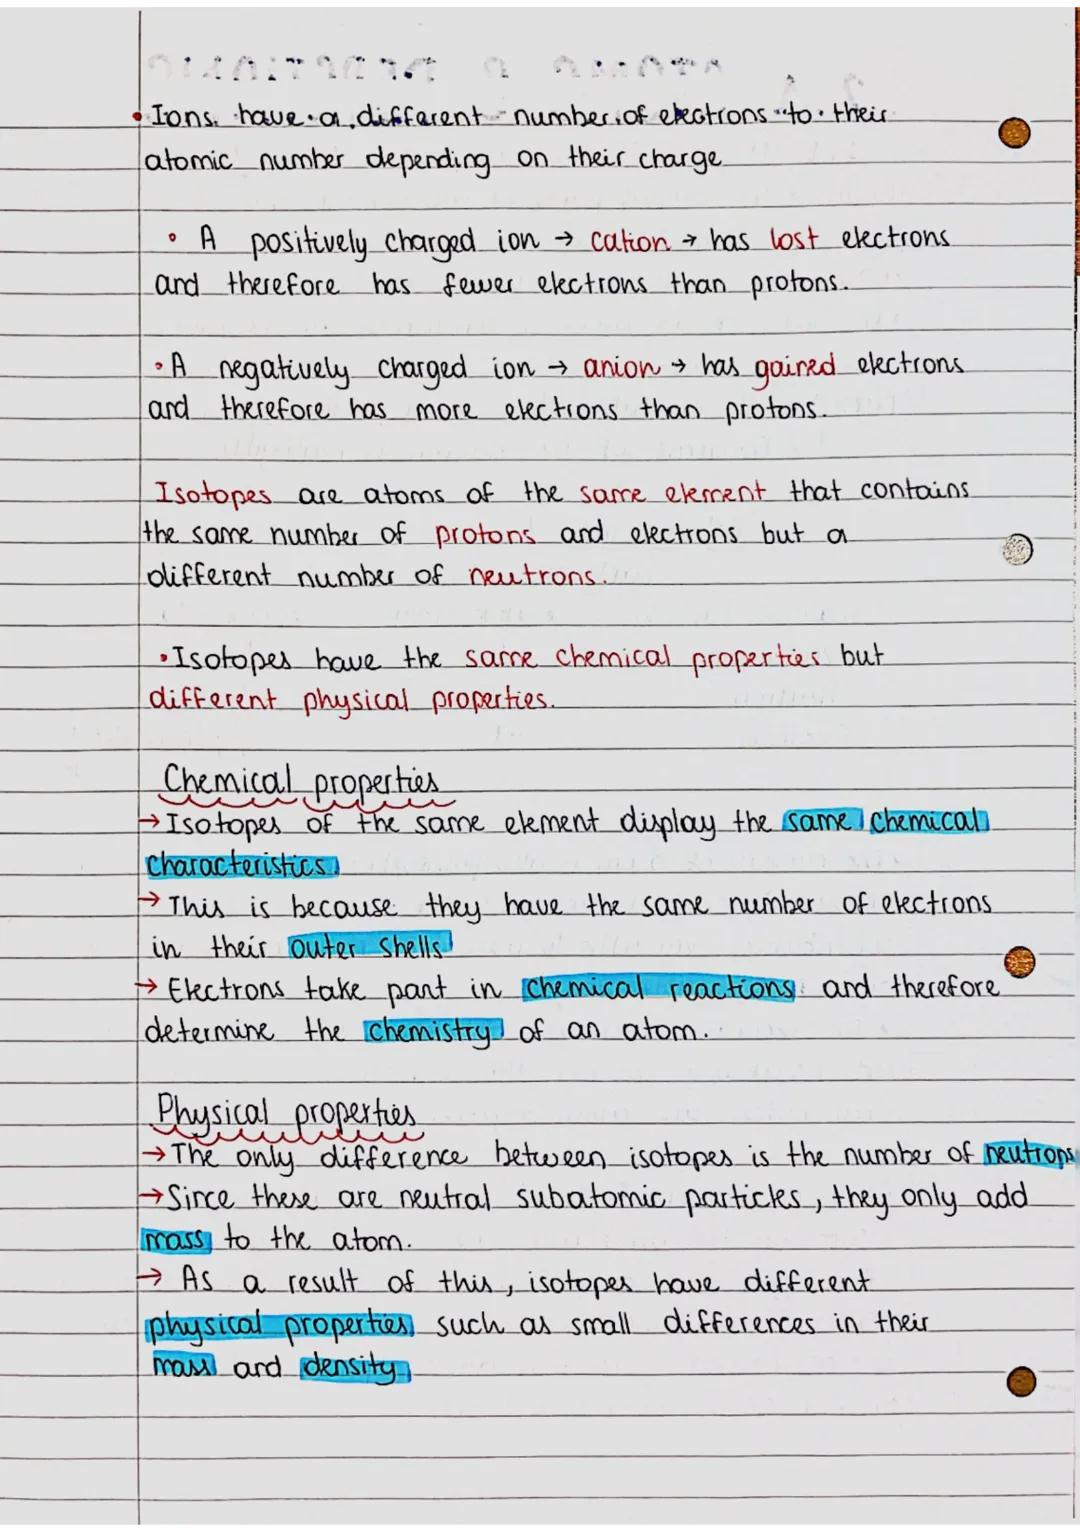 • Ions have a different number of electrons to their
atomic number depending on their charge
• A positively charged ion → cation → has lost electrons
and therefore has fewer electrons than protons.
• A negatively charged ion → anion → has gained electrons
and therefore has more electrons than protons.
Isotopes are atoms of the same element that contains
the same number of protons and electrons but a
different number of neutrons.
• Isotopes have the same chemical properties but
different physical properties.
Chemical properties
→ Isotopes of the same element display the same chemical
characteristics.
→ This is because they have the same number of electrons
in their outer shells
→ Electrons take part in chemical reactions and therefore
determine the chemistry of an atom.
Physical properties
→ The only difference between isotopes is the number of neutrons
→ Since these are neutral subatomic particles, they only add
mass to the atom.
→ As a result of this, isotopes have different
physical properties such as small differences in their
mass and density